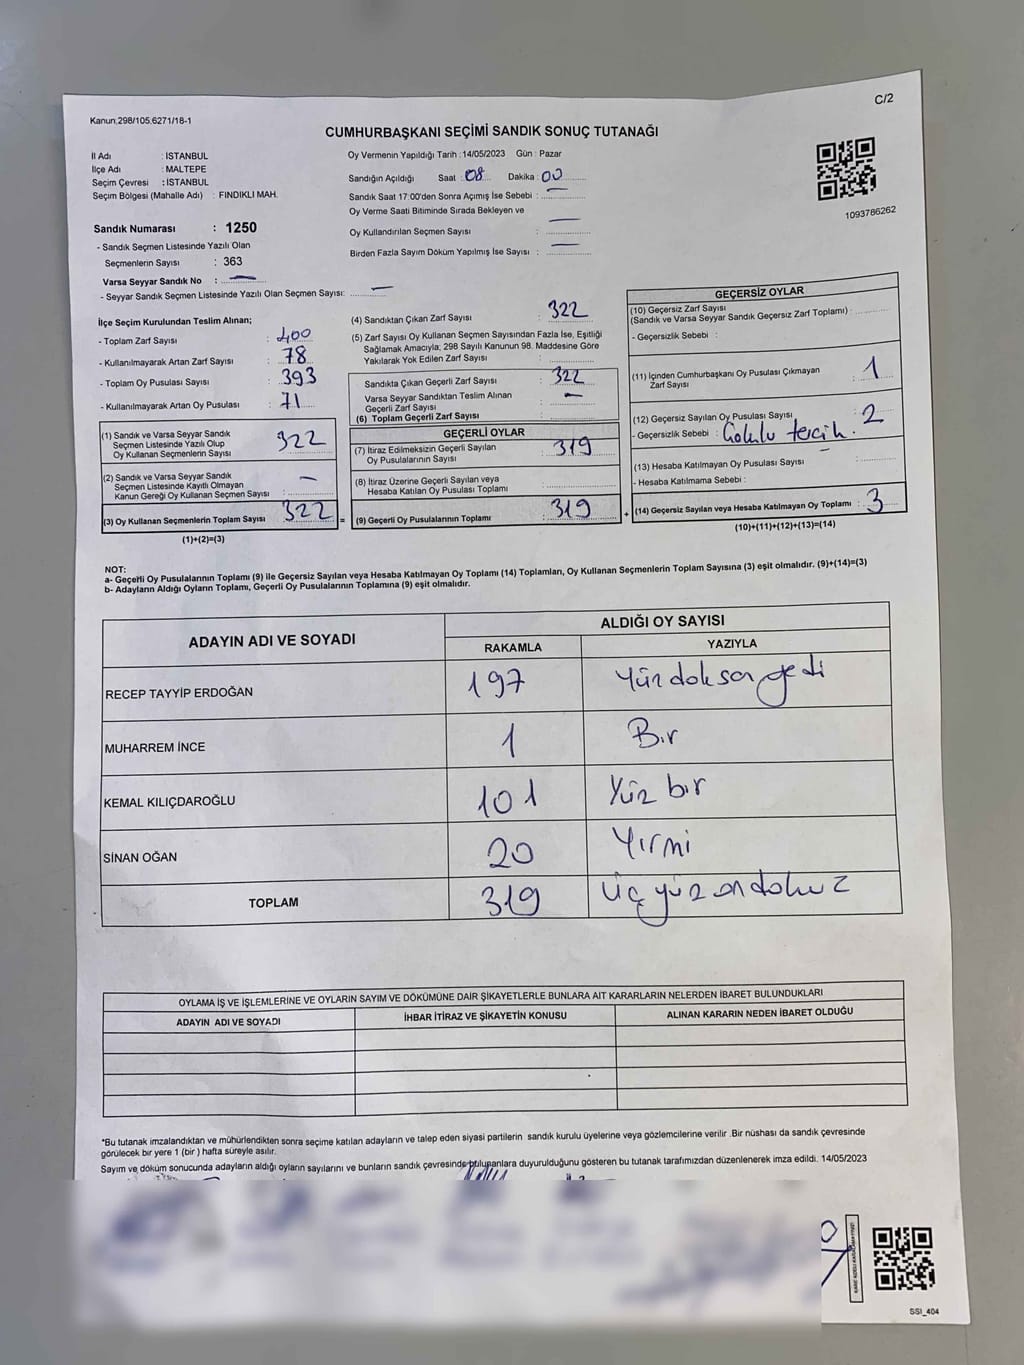 C/2
Kanun.298/105.6271/18-1
CUMHURBAŞKANI SEÇİMİ SANDIK SONUÇ TUTANAĞI
İl Adı : İSTANBUL
İlçe Adı : MALTEPE
Seçim Çevresi : İSTANBUL
Seçim Bölgesi (Mahalle Adı) : FINDIKLI MAH.
Sandık Numarası : 1250
- Sandık Seçmen Listesinde Yazılı Olan
Seçmenlerin Sayısı : 363
Varsa Seyyar Sandık No : —
- Seyyar Sandık Seçmen Listesinde Yazılı Olan Seçmen Sayısı: —
Oy Vermenin Yapıldığı Tarih :14/05/2023 Gün : Pazar
Sandığın Açıldığı Saat : 08 Dakika : 00
Sandık Saat 17:00'den Sonra Açımış İse Sebebi : —
Oy Verme Saati Bitiminde Sırada Bekleyen ve
Oy Kullandırılan Seçmen Sayısı : —
Birden Fazla Sayım Döküm Yapılmış İse Sayısı : —
1093786262
İlçe Seçim Kurulundan Teslim Alınan;
- Toplam Zarf Sayısı : 400
- Kullanılmayarak Artan Zarf Sayısı : 78
- Toplam Oy Pusulası Sayısı : 393
- Kullanılmayarak Artan Oy Pusulası : 71
(1) Sandık ve Varsa Seyyar Sandık
Seçmen Listesinde Yazılı Olup
Oy Kullanan Seçmenlerin Sayısı 322
(2) Sandık ve Varsa Seyyar Sandık
Seçmen Listesinde Kayıtlı Olmayan
Kanun Gereği Oy Kullanan Seçmen Sayısı : —
(3) Oy Kullanan Seçmenlerin Toplam Sayısı : 322 =
(1)+(2)=(3)
(4) Sandıktan Çıkan Zarf Sayısı : 322
(5) Zarf Sayısı Oy Kullanan Seçmen Sayısından Fazla İse, Eşitliği
Sağlamak Amacıyla, 298 Sayılı Kanunun 98. Maddesine Göre
Yakılarak Yok Edilen Zarf Sayısı :
Sandıkta Çıkan Geçerli Zarf Sayısı : 322
Varsa Seyyar Sandıktan Teslim Alınan
Geçerli Zarf Sayısı : —
(6) Toplam Geçerli Zarf Sayısı :
GEÇERLİ OYLAR
(7) İtiraz Edilmeksizin Geçerli Sayılan
Oy Pusulalarının Sayısı : 319
(8) İtiraz Üzerine Geçerli Sayılan veya
Hesaba Katılan Oy Pusulası Toplamı :
(9) Geçerli Oy Pusulalarının Toplamı : 319 +
GEÇERSİZ OYLAR
(10) Geçersiz Zarf Sayısı
(Sandık ve Varsa Seyyar Sandık Geçersiz Zarf Toplamı) :
- Geçersizlik Sebebi :
(11) İçinden Cumhurbaşkanı Oy Pusulası Çıkmayan
Zarf Sayısı : 1
(12) Geçersiz Sayılan Oy Pusulası Sayısı : 2
- Geçersizlik Sebebi : Çoklu tercih.
(13) Hesaba Katılmayan Oy Pusulası Sayısı :
- Hesaba Katılmama Sebebi :
(14) Geçersiz Sayılan veya Hesaba Katılmayan Oy Toplamı : 3
(10)+(11)+(12)+(13)=(14)
NOT:
a- Geçerli Oy Pusulalarının Toplamı (9) ile Geçersiz Sayılan veya Hesaba Katılmayan Oy Toplamı (14) Toplamları, Oy Kullanan Seçmenlerin Toplam Sayısına (3) eşit olmalıdır. (9)+(14)=(3)
b- Adayların Aldığı Oyların Toplamı, Geçerli Oy Pusulalarının Toplamına (9) eşit olmalıdır.
ADAYIN ADI VE SOYADI ALDIĞI OY SAYISI
RAKAMLA YAZIYLA
RECEP TAYYİP ERDOĞAN 197 Yüz doksan yedi
MUHARREM İNCE 1 Bir
KEMAL KILIÇDAROĞLU 101 Yüz bir
SİNAN OĞAN 20 Yirmi
TOPLAM 319 üç yüz on dokuz
OYLAMA İŞ VE İŞLEMLERİNE VE OYLARIN SAYIM VE DÖKÜMÜNE DAİR ŞİKAYETLERLE BUNLARA AİT KARARLARIN NELERDEN İBARET BULUNDUKLARI
ADAYIN ADI VE SOYADI İHBAR İTİRAZ VE ŞİKAYETİN KONUSU ALINAN KARARIN NEDEN İBARET OLDUĞU
*Bu tutanak imzalandıktan ve mühürlendikten sonra seçime katılan adayların ve talep eden siyasi partilerin sandık kurulu üyelerine veya gözlemcilerine verilir .Bir nüshası da sandık çevresinde
görülecek bir yere 1 (bir) hafta süreyle asılır.
Sayım ve döküm sonucunda adayların aldığı oyların sayılarını ve bunların sandık çevresinde bulunanlara duyurulduğunu gösteren bu tutanak tarafımızdan düzenlenerek imza edildi. 14/05/2023
SSI_404